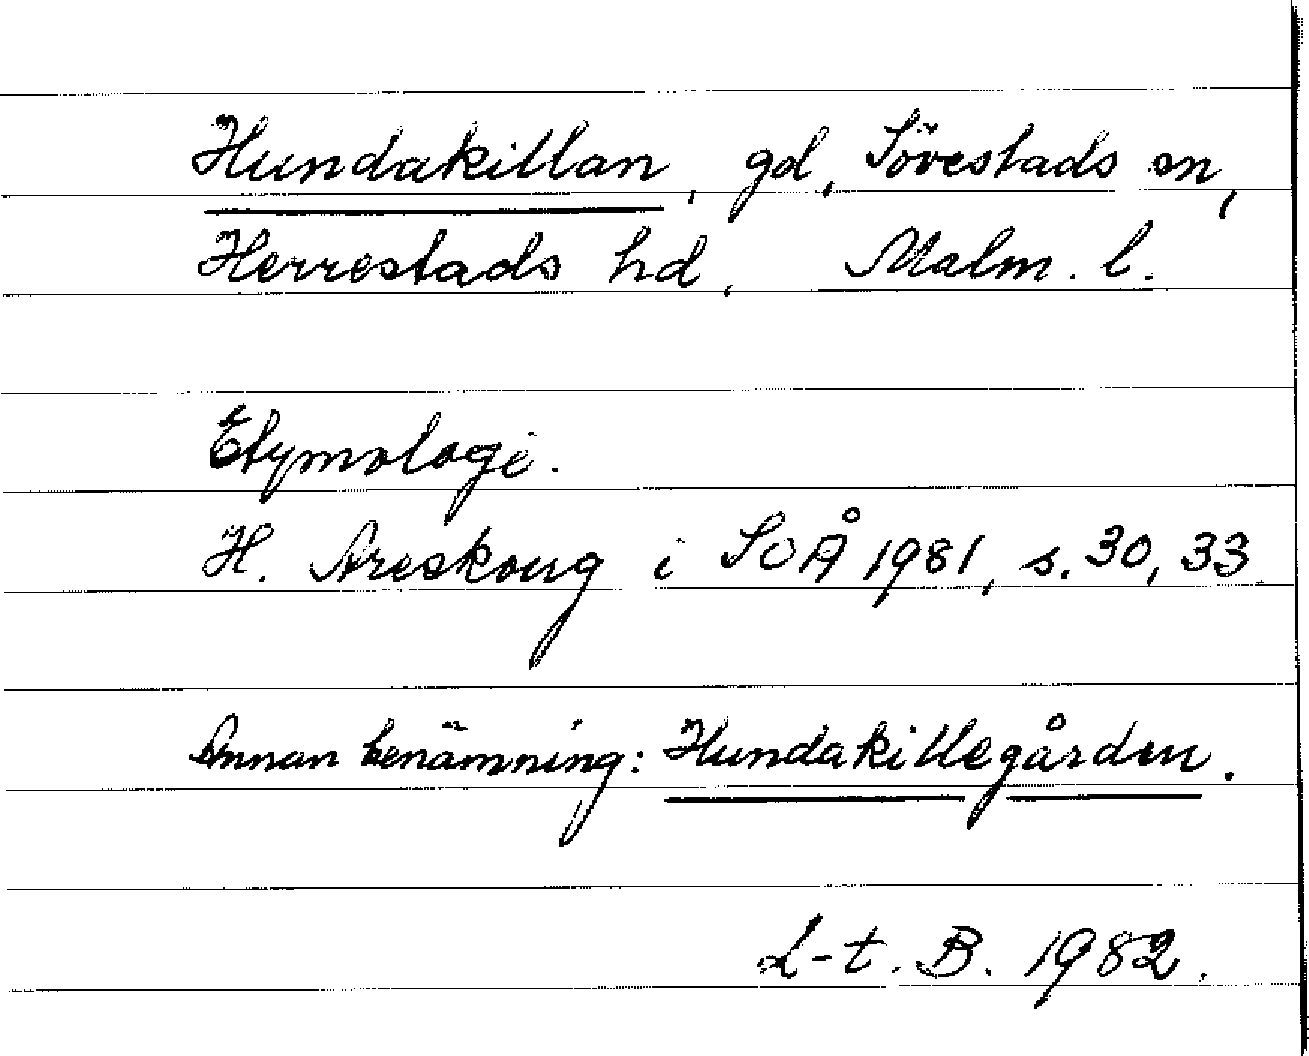 Hundakillan, gd, Sövestads sn,
Herrestads hd, Malm. l.
Etymologi.
H. Areskoug i SOÅ 1981, s. 30, 33
Annan benämning: Hundakillegården.
L-t. B. 1982.